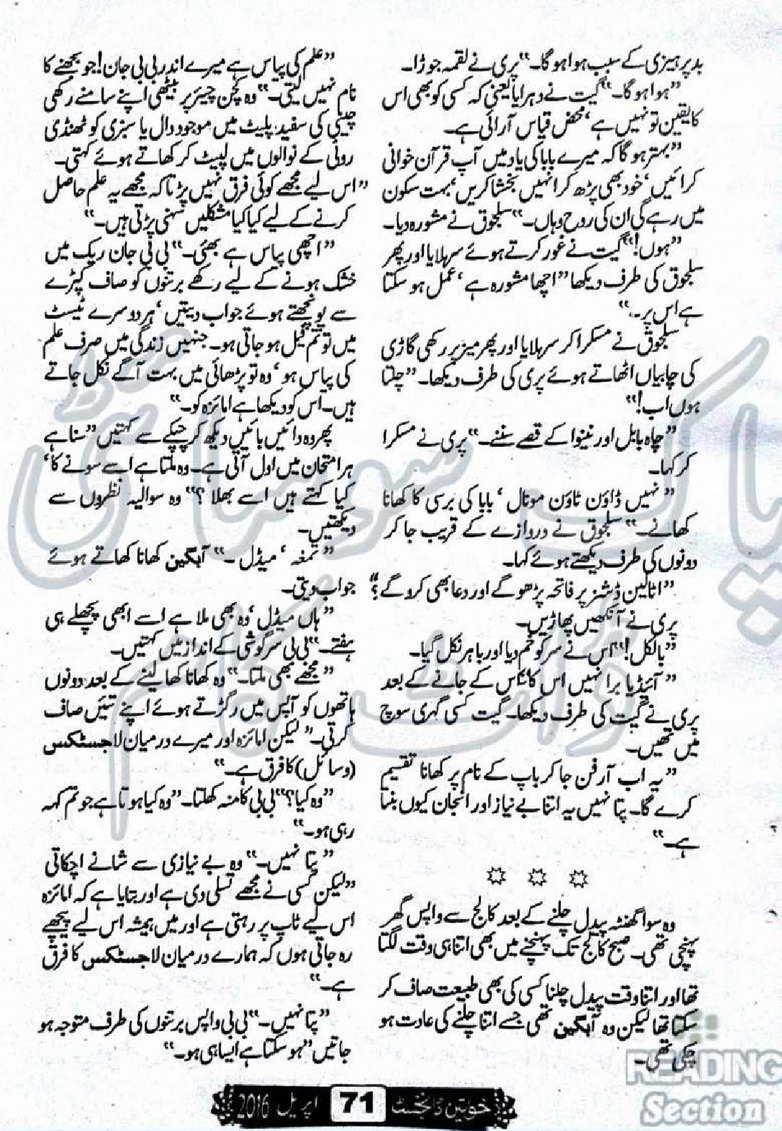 بدپرہیزی کے سبب ہوا ہوگا۔" پری نے لقمہ جوڑا۔
"ہوا ہوگا۔" گیت نے دہرایا یعنی کہ کسی کو بھی اس
کا یقین تو نہیں ہے، محض قیاس آرائی ہے۔
"بہتر ہوگا کہ میرے بابا کی یاد میں آپ قرآن خوانی
کرائیں، خود بھی پڑھ کر انہیں بخشا کریں، بہت سکون
میں رہے گی ان کی روح وہاں۔" سلجوق نے مشورہ دیا۔
"ہوں!" گیت نے غور کرتے ہوئے سر ہلایا اور پھر
سلجوق کی طرف دیکھا "اچھا مشورہ ہے، عمل ہو سکتا
ہے اس پر۔"
سلجوق نے مسکرا کر سر ہلایا اور پھر میز پر رکھی گاڑی
کی چابیاں اٹھاتے ہوئے پری کی طرف دیکھا۔ "چلتا
ہوں اب!"
"چاہ بابل اور نینوا کے قصے سننے۔" پری نے مسکرا
کر کہا۔
"نہیں ڈاؤن ٹاؤن مونال، بابا کی برسی کا کھانا
کھانے۔" سلجوق نے دروازے کے قریب جا کر
دونوں کی طرف دیکھتے ہوئے کہا۔
"اٹالین ڈشز پر فاتحہ پڑھو گے اور دعا بھی کرو گے؟"
پری نے آنکھیں پھاڑیں۔
"بالکل!" اس نے سر کو خم دیا اور باہر نکل گیا۔
"آئیڈیا برا نہیں اس کا" اس کے جانے کے بعد
پری نے گیت کی طرف دیکھا۔ گیت کسی گہری سوچ
میں تھیں۔
"یہ اب آرفن جا کر باپ کے نام پر کھانا تقسیم
کرے گا۔ پتا نہیں یہ اتنا بے نیاز اور انجان کیوں بنتا
ہے۔"
وہ سوا گھنٹہ پیدل چلنے کے بعد کالج سے واپس گھر
پہنچی تھی۔ صبح کالج تک پہنچنے میں بھی اتنا ہی وقت لگتا
تھا اور اتنا وقت پیدل چلنا کسی کی بھی طبیعت صاف کر
سکتا تھا لیکن وہ آبگین تھی جسے اتنا چلنے کی عادت ہو
چکی تھی۔
"علم کی پیاس ہے میرے اندر بی بی جان! جو بجھنے کا
نام نہیں لیتی۔" وہ کچن چیئر پر بیٹھی اپنے سامنے رکھی
چینی کی سفید پلیٹ میں موجود دال یا سبزی کو ٹھنڈی
روٹی کے نوالوں میں لپیٹ کر کھاتے ہوئے کہتی۔
"اس لیے مجھے کوئی فرق نہیں پڑتا کہ مجھے یہ علم حاصل
کرنے کے لیے کیا کیا مشکلیں سہنی پڑتی ہیں۔"
"اچھی پیاس ہے بھئی۔" بی بی جان ریک میں
خشک ہونے کے لیے رکھے برتنوں کو صاف کپڑے
سے پونچھتے ہوئے جواب دیتیں، ہر دوسرے ٹیسٹ
میں تو تم فیل ہو جاتی ہو۔ جنہیں زندگی میں صرف علم
کی پیاس ہو، وہ تو پڑھائی میں بہت آگے نکل جاتے
ہیں۔ اس کو دیکھا ہے امائزہ کو۔"
پھر وہ دائیں بائیں دیکھ کر چپکے سے کہتیں "سنا ہے
ہر امتحان میں اول آتی ہے۔ وہ ملتا ہے اسے سونے کا،
کیا کہتے ہیں اسے بھلا؟" وہ سوالیہ نظروں سے
دیکھتیں۔
"تمغہ، میڈل۔" آبگین کھانا کھاتے ہوئے
جواب دیتی۔
"ہاں میڈل، وہ بھی ملا ہے اسے ابھی پچھلے ہی
ہفتے۔" بی بی سرگوشی کے انداز میں کہتیں۔
"مجھے بھی ملتا۔" وہ کھانا کھا لینے کے بعد دونوں
ہاتھوں کو آپس میں رگڑتے ہوئے اپنے تئیں صاف
کرتی۔ "لیکن امائزہ اور میرے درمیان لاجسٹکس
(وسائل) کا فرق ہے۔"
"وہ کیا؟" بی بی کا منہ کھلتا۔ "وہ کیا ہوتا ہے جو تم کہہ
رہی ہو۔"
"پتا نہیں۔" وہ بے نیازی سے شانے اچکاتی
"لیکن کسی نے مجھے تسلی دی ہے اور بتایا ہے کہ امائزہ
اس لیے ٹاپ پر رہتی ہے اور میں ہمیشہ اس لیے پیچھے
رہ جاتی ہوں کہ ہمارے درمیان لاجسٹکس کا فرق
ہے۔"
"پتا نہیں۔" بی بی واپس برتنوں کی طرف متوجہ ہو
جاتیں "ہو سکتا ہے ایسا ہی ہو۔"
خواتین ڈائجسٹ 71 اپریل 2016
READING
Section
پاک سوسائٹی
ڈاٹ کام